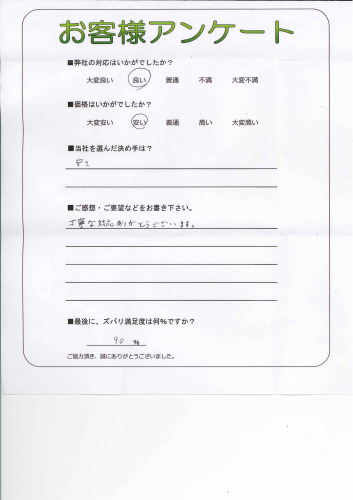 お客様アンケート
■弊社の対応はいかがでしたか？
大変良い 良い 普通 不満 大変不満
■価格はいかがでしたか？
大変安い 安い 普通 高い 大変高い
■当社を選んだ決め手は？
安さ
■ご感想・ご要望などをお書き下さい。
丁寧な対応ありがとうございます。
■最後に、ズバリ満足度は何%ですか？
90 %
ご協力頂き、誠にありがとうございました。